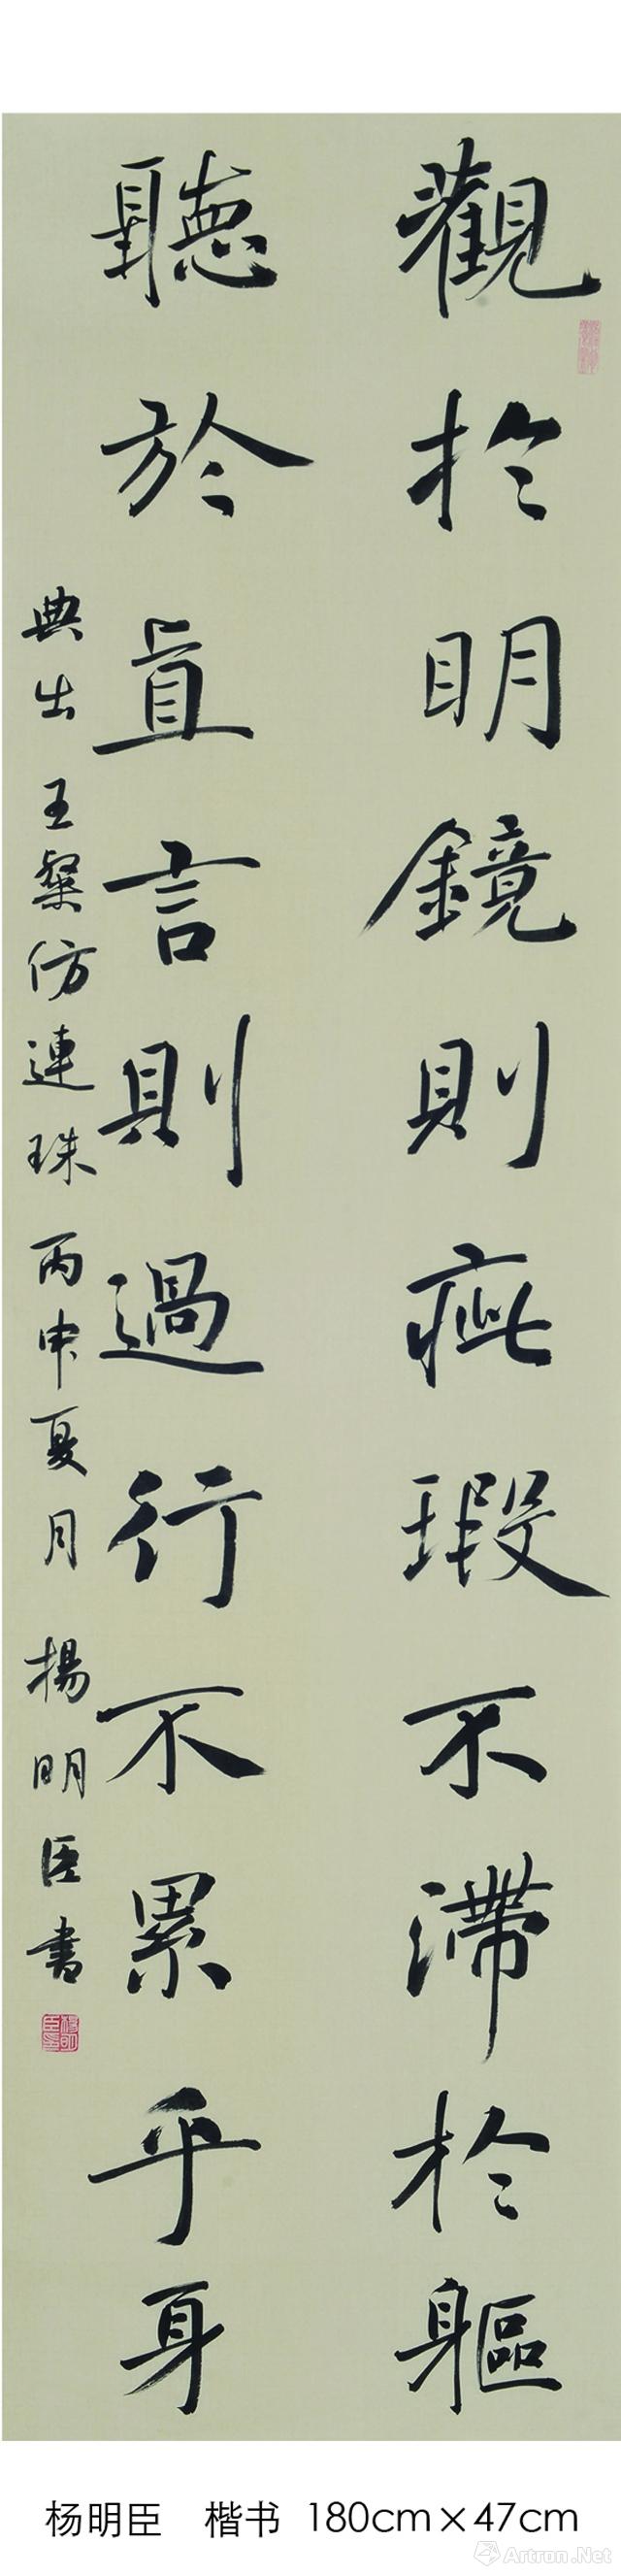 觀於明鏡則疵瑕不滯於軀
聽於直言則過行不累乎身
典出王粲仿連珠丙申夏月楊明臣書
杨明臣 楷书 180cm×47cm
Artron.Net